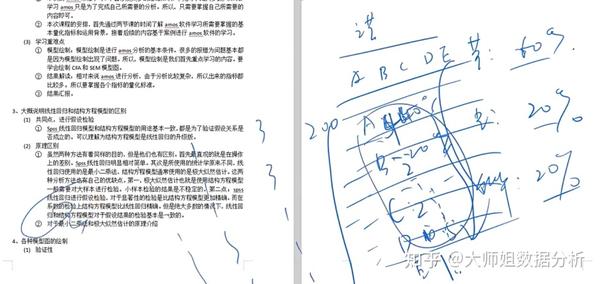 学习只是为了完成自己所需要的分析。所以，只需要掌握自己所需要的
内容即可。
② 本次课程的安排，首先通过两节课的时间了解 amos 软件学习所需要掌握的基
本量化指标和运用背景。接着后续的内容基于案例进行 amos 的学习。
(3) 学习重难点
① 模型绘制。模型绘制是进行 amos 分析的基本条件。很多的报错为问题基本都
是因为模型绘制出现了问题。所以，模型绘制是我们首先重点学习的内容。要
学会绘制 CFA 和 SEM 模型图。
② 结果解读。相对来说 amos 进行分析，由于分析比较复杂，所以出来的指标都
比较多，所以要掌握各个指标的量化标准。
③ 结果汇报。
3、大概说明线性回归和结构方程模型的区别
(1) 共同点，进行假设检验
① Spss 线性回归模型和结构方程模型的用途基本一致，都是为了验证假设关系是
否成立的。可以理解为结构方程模型是线性回归的升级版。
(2) 原理区别
① 虽然两种方法有着同样的目的，但是他们也有区别，首先最直观的就是在操作
上的差别，Spss 线性回归明显相对简单。其次是所使用的统计学原来不同，线
性回归使用的是最小二乘法，结构方程模型通常使用的是极大似然估计。这两
种分析方法也有自己的优缺点。第一，极大似然估计也就是使用结构方程模型
一般需要对大样本进行检验，小样本检验的结果是不稳定的。第二点，spss
线性回归进行假设检验，对于显著性的检验是比结构方程模型更加精确，而在
系数的检验上结构方程模型比线性回归精确。但是绝大多数的情况下，线性回
归和结构方程模型对于假设结果的检验基本是一致的。
② 对于最小二乘法和极大似然估计的原理介绍
4、各种模型图的绘制
(1) 验证性
3
3
A B C D E
60%
200
A
20%
B
20%
C
2
知乎 @大师姐数据分析